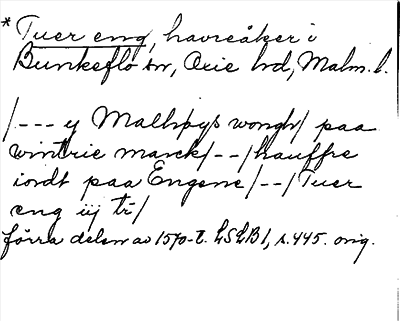 * Tuer eng, havreåker i
Bunkeflo sn, Oxie hd, Malm. l.
/--- y Malhøys wongh/ paa
wintrie marck/--/hauffre
iordt paa Engene/--/Tuer
eng iij tr/
förra delen av 1570-t. LSLB1, s. 445. orig.